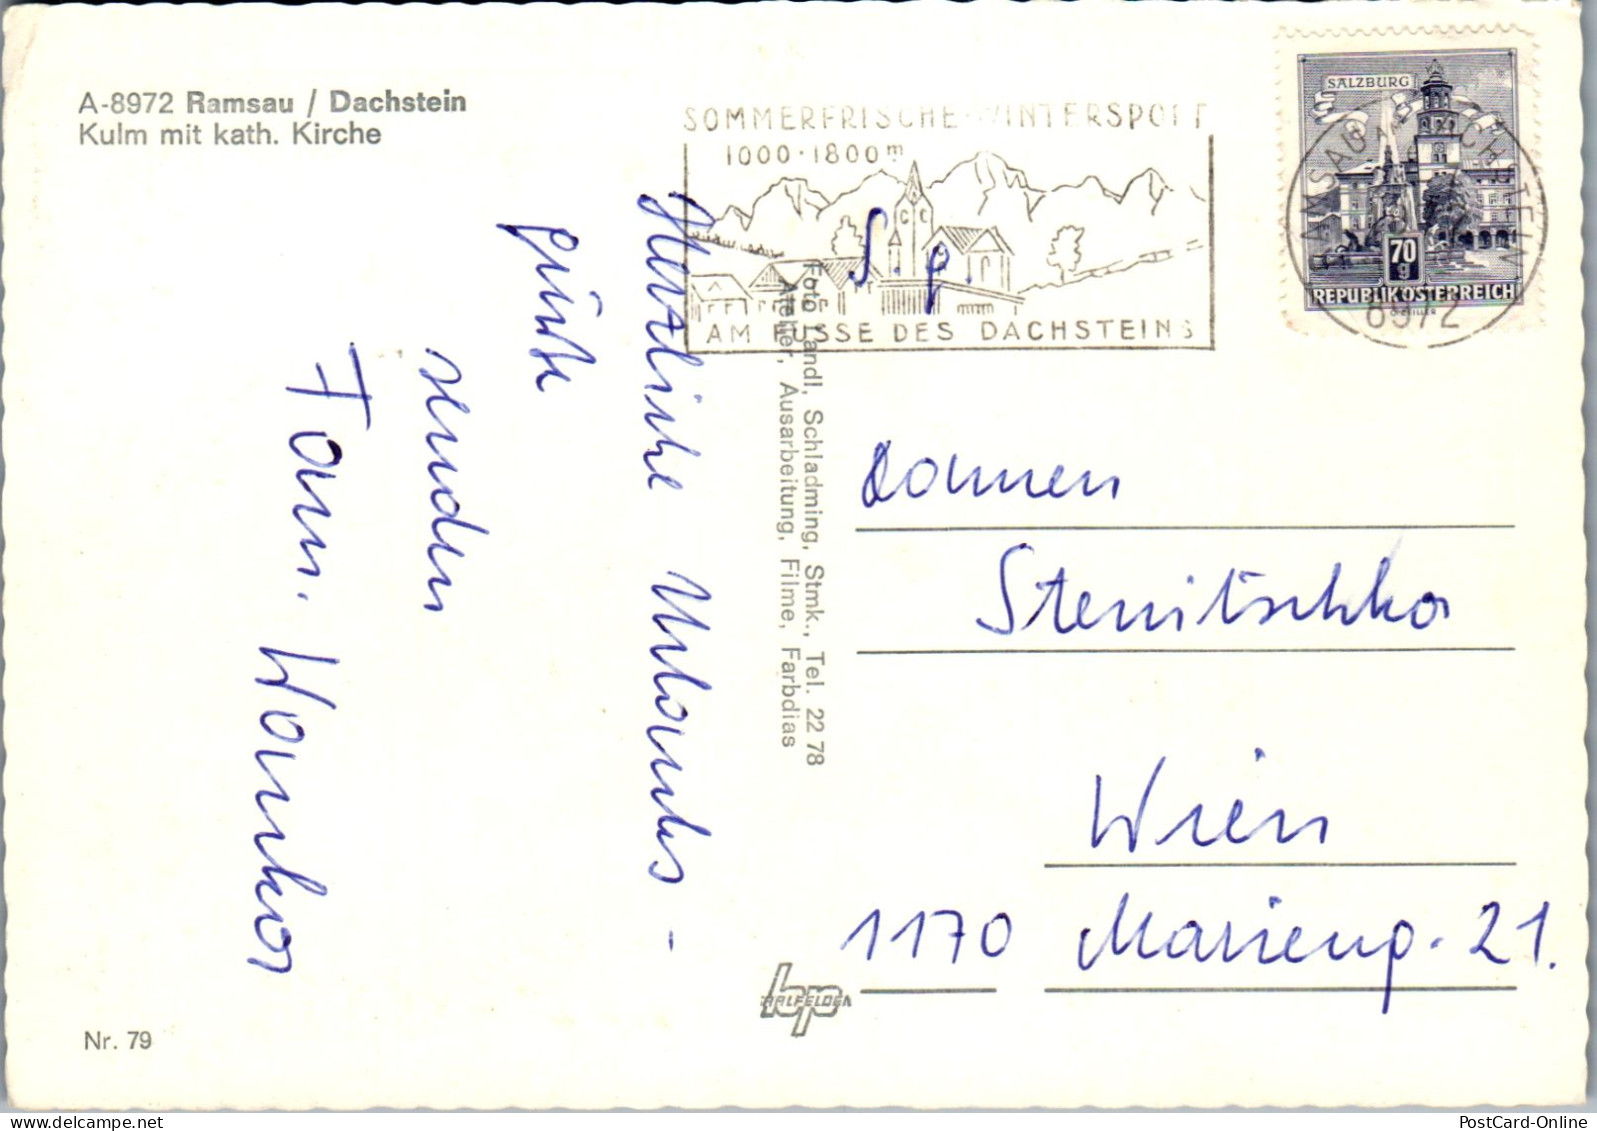 A-8972 Ramsau / Dachstein
Kulm mit kath. Kirche
SOMMERFRISCHE-WINTERSPORT
1000-1800m
AM FUSSE DES DACHSTEINS
SALZBURG
70
g
REPUBLIK ÖSTERREICH
RAMSAU AM DACHSTEIN
8972
Herzliche Urlaubs-
grüße
senden
Fam.
Foto Landl, Schladming, Stmk., Tel. 22 78
Atelier, Ausarbeitung, Filme, Farbdias
S. g.
Stenitschka
Wien
1170 Marieng. 21.
Nr. 79
PostCard-Online